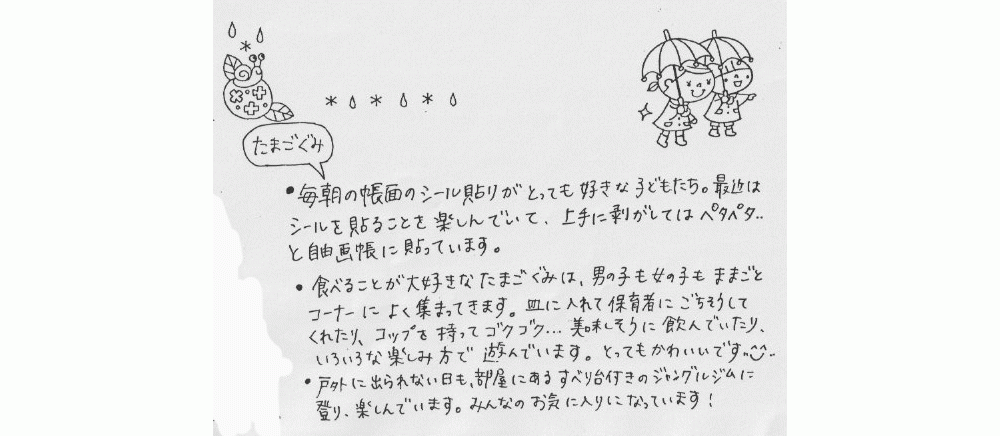 たまごぐみ
•毎朝の帳面のシール貼りがとっても好きな子どもたち。最近は
シールを貼ることを楽しんでいて、上手に剥がしてはペタペタ..
と自由画帳に貼っています。
•食べることが大好きなたまごぐみは、男の子も女の子もままごと
コーナーによく集まってきます。皿に入れて保育者にごちそうして
くれたり、コップを持ってゴクゴク...美味しそうに飲んでいたり、
いろいろな楽しみ方で遊んでいます。とってもかわいいです..
•戸外に出られない日も、部屋にあるすべり台付きのジャングルジムに
登り、楽しんでいます。みんなのお気に入りになっています!